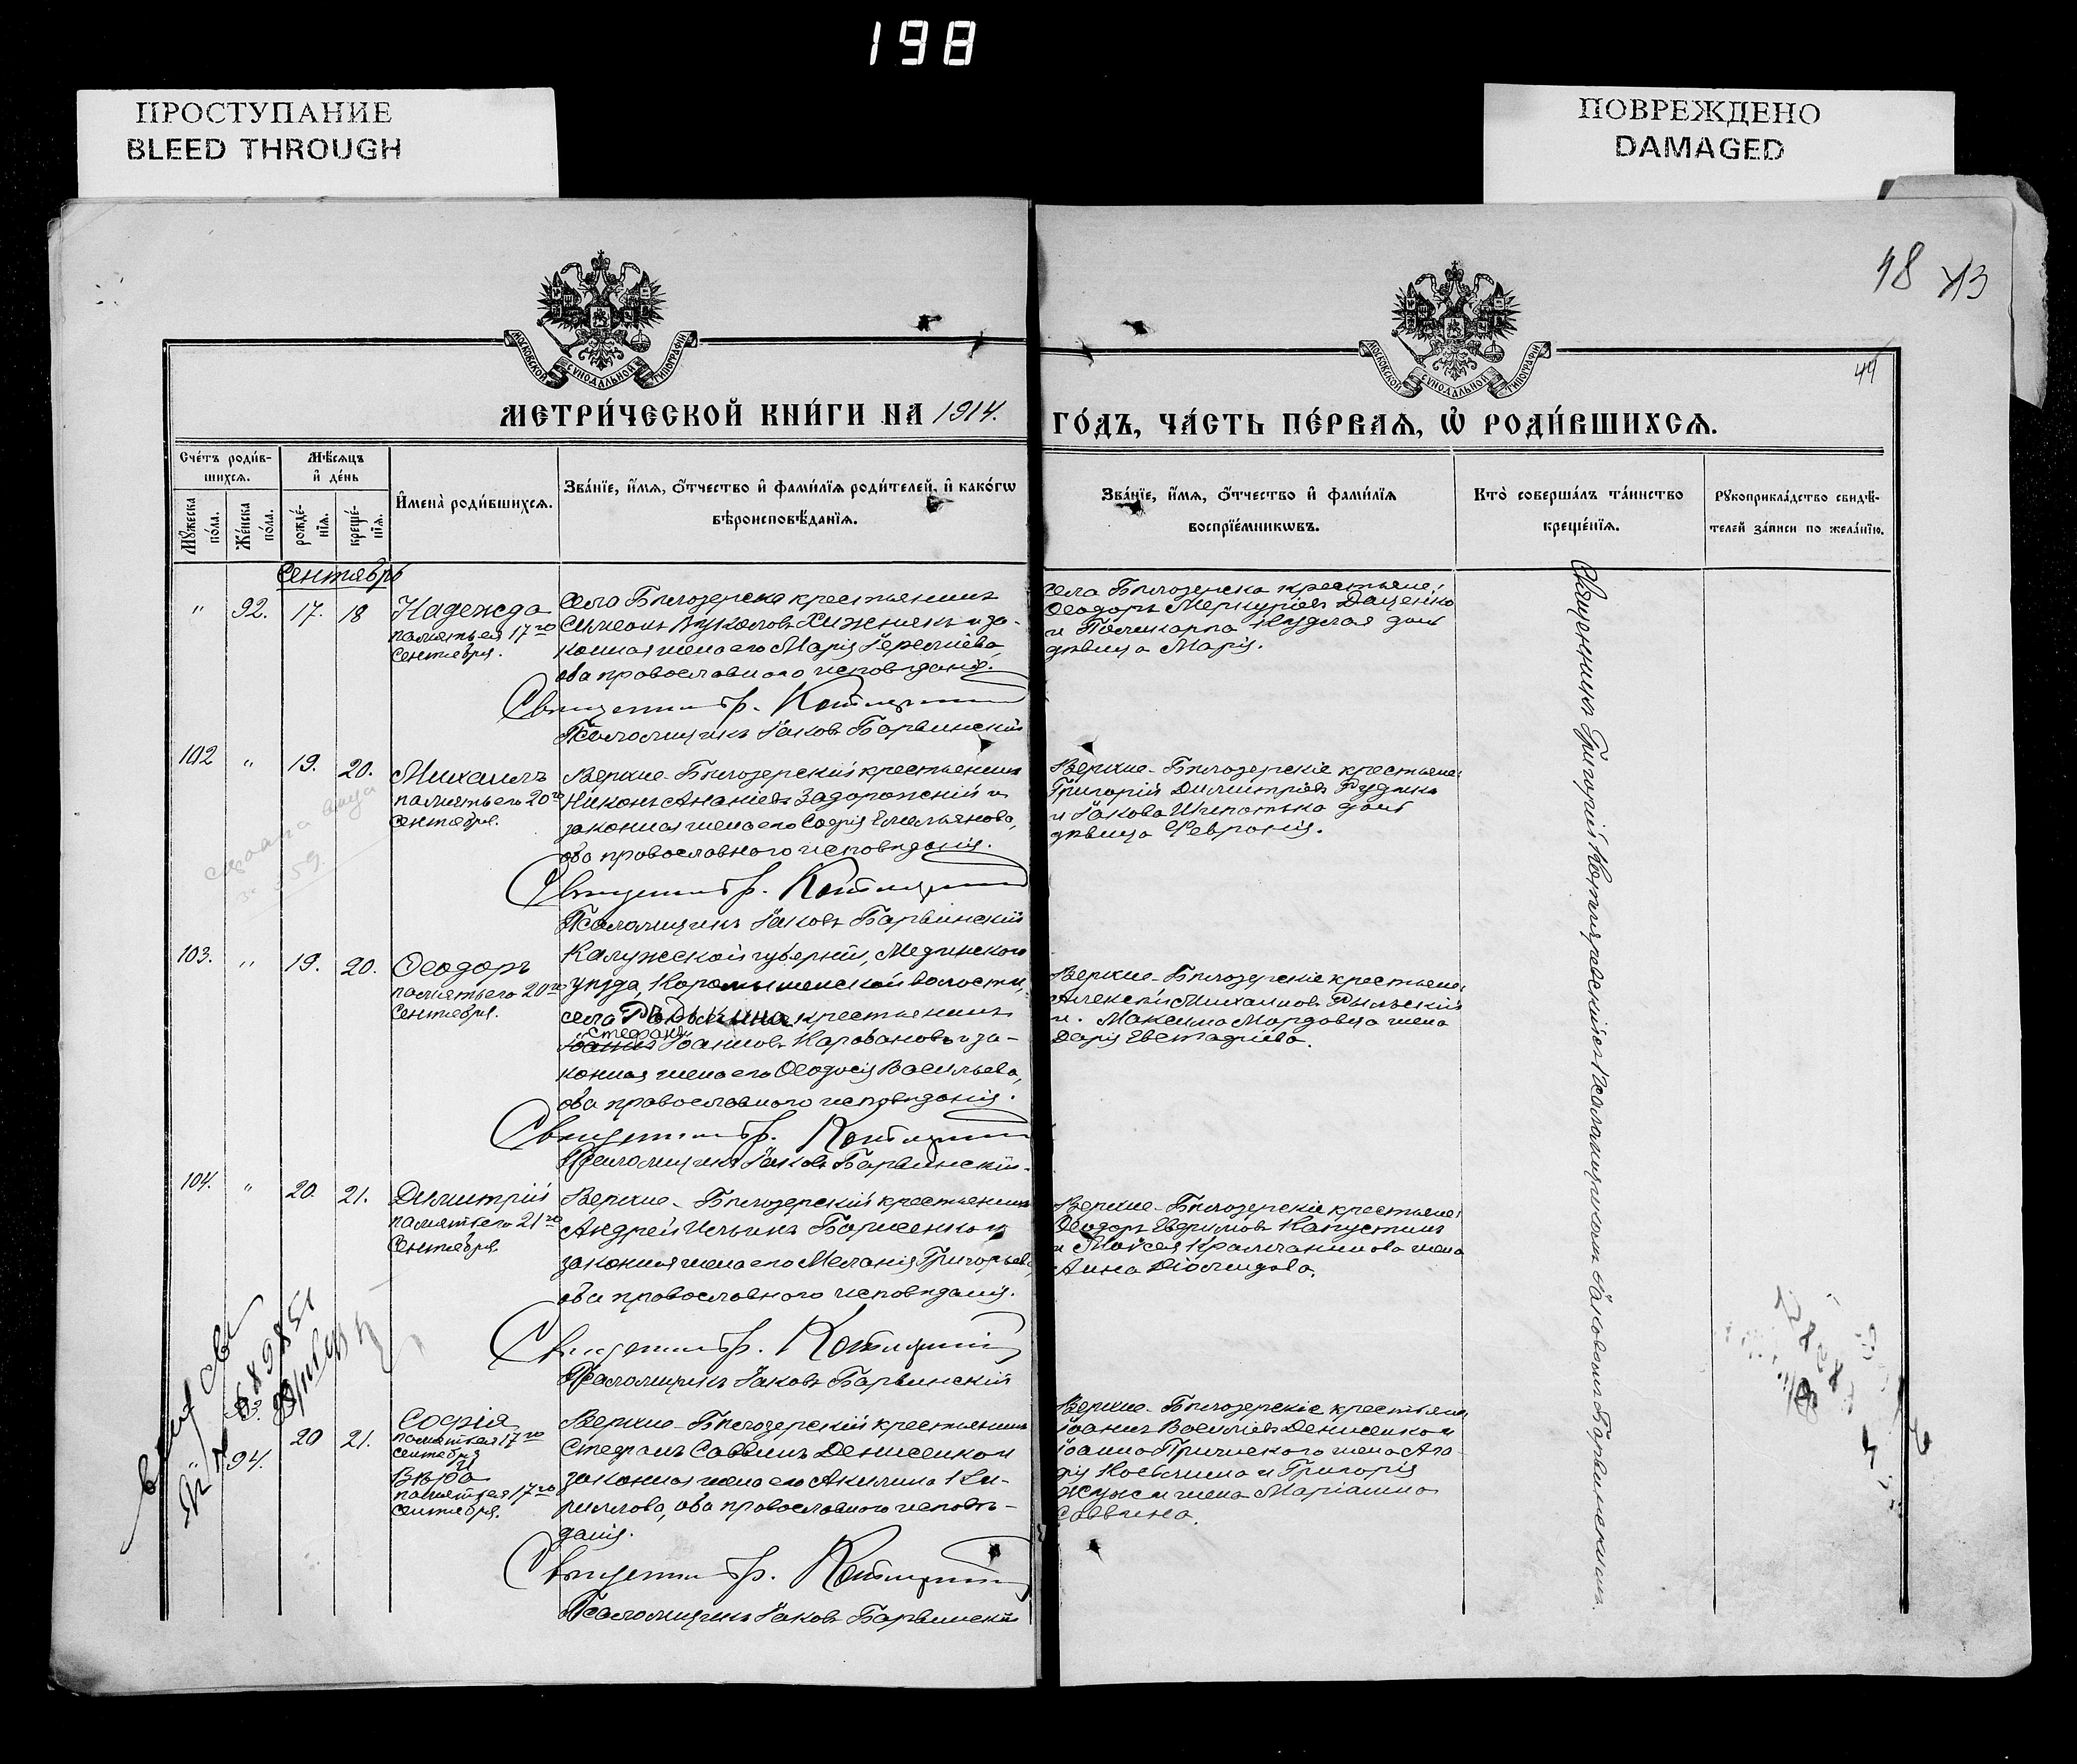 198
ПРОСТУПАНИЕ
BLEED THROUGH
ПОВРЕЖДЕНО
DAMAGED
48 43
44
МОСКОВСКОЙ СѴНОДАЛЬНОЙ ТИПОГРАФІИ
МОСКОВСКОЙ СѴНОДАЛЬНОЙ ТИПОГРАФІИ
МЕТРИ́ЧЕСКОЙ КНИ́ГИ НА 1914.
ГО́ДЪ, ЧА́СТЬ ПЕ́РВАѦ, Ѡ҆ РОДИ́ВШИХСѦ.
Сче́тъ роди́вшихсѧ.
Мꙋ́жеска по́ла.
Же́нска по́ла.
Мѣ́сѧцъ и҆ де́нь
рожде́нїѧ.
креще́нїѧ.
И҆мена̀ роди́вшихсѧ.
Зва́нїе, и҆́мѧ, ѻ҆́тчество и҆ фами́лїѧ роди́телей, и҆ како́гѡ
вѣроисповѣ́данїѧ.
Зва́нїе, и҆́мѧ, ѻ҆́тчество и҆ фами́лїѧ
воспрїе́мникѡвъ.
Кто̀ соверша́лъ та́инство
креще́нїѧ.
Рꙋкоприкла́дство свидѣ́-
телей за́писи по жела́нїю.
Сентябрь
" 92. 17. 18 Надежда
память ея 17го
Сентября.
Села Бѣлозерска крестьянинъ
Симеонъ Вуколовъ Хижнякъ и за-
конная жена его Марія Іереміева,
оба православнаго исповѣданія.
Священникъ Гр. Котляревскій
Псаломщикъ Іаковъ Барвинскій
Села Бѣлозерска крестьяне:
Ѳеодоръ Меркуріевъ Даценко
и Поликарпа дочь
дѣвица Марія.
102 " 19. 20. Михаилъ
память его 20го
Сентября.
Верхне-Бѣлозерскій крестьянинъ
Никонъ Ананіевъ Задорожскій и
законная жена его Софія Емельянова,
оба православнаго исповѣданія.
Священникъ Гр. Котляревскій
Псаломщикъ Іаковъ Барвинскій
Верхне-Бѣлозерскіе крестьяне:
Григорій Димитріевъ Рудыка
и Іакова Шпотька дочь
дѣвица Февронія.
103. " 19. 20. Ѳеодоръ
память его 20го
Сентября.
Калужской губерніи, Мединского
уѣзда, волости,
села Рѣдькина крестьянинъ
Стефанъ
Іоаннъ Іоанновъ Каровановъ и за-
конная жена его Ѳеодосія Васильева,
оба православнаго исповѣданія.
Священникъ Гр. Котляревскій
Псаломщикъ Іаковъ Барвинскій.
Верхне-Бѣлозерскіе крестьяне:
Алексѣй Михаиловъ Рыльскій
и Максима Мордовца жена
Дарія Евстафіева.
104. " 20. 21. Димитрій
память его 21го
Сентября.
Верхне-Бѣлозерскій крестьянинъ
Андрей Ильинъ Борисенко и
законная жена его Меланія Григорьева,
оба православнаго исповѣданія.
Священникъ Гр. Котляревскій
Псаломщикъ Іаковъ Барвинскій
Верхне-Бѣлозерскіе крестьяне:
Ѳеодоръ Евфимовъ Капустинъ
и Моѵсея жена
Анна Діомидова.
93. 94. 20 21. Софія
память ея 17го
сентября
и
Вѣра
память ея 17го
сентября.
Верхне-Бѣлозерскій крестьянинъ
Стефанъ Саввинъ Денисенко и
законная жена его Акилина Ки-
риллова, оба православнаго исповѣ-
данія.
Священникъ Гр. Котляревскій
Псаломщикъ Іаковъ Барвинскій
Верхне-Бѣлозерскіе крестьяне:
Іоаннъ Васильевъ Денисенко и
Іоанна жена Ага-
фія Косьмина и Григорія
жена Маріанна
Саввина.
Священникъ Григорій Котляревскій съ псаломщикомъ Іаковомъ Барвинскимъ.